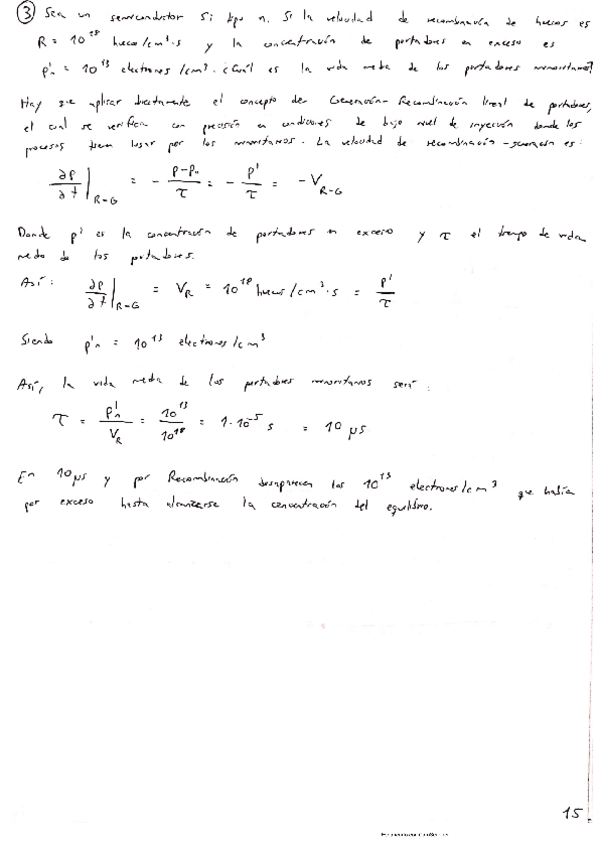 ③ Sea un semiconductor Si tipo n. Si la velocidad de recombinación de huecos es
R = 10¹⁸ huecos/cm³·s y la concentración de portadores en exceso es
p'ₙ = 10¹³ electrones/cm³. ¿Cuál es la vida media de los portadores minoritarios?
Hay que aplicar directamente el concepto de Generación-Recombinación lineal de portadores,
el cual se verifica con precisión en condiciones de bajo nivel de inyección donde los
procesos tienen lugar por los minoritarios. La velocidad de recombinación-generación es:
∂p/∂t|R-G = - (p-pₙ)/τ = - p'/τ = -V_R-G
Donde p' es la concentración de portadores en exceso y τ el tiempo de vida
medio de los portadores.
Así: ∂p/∂t|R-G = V_R = 10¹⁸ huecos/cm³·s = p'/τ
Siendo p'ₙ = 10¹³ electrones/cm³
Así, la vida media de los portadores minoritarios será:
τ = p'ₙ/V_R = 10¹³/10¹⁸ = 1·10⁻⁵ s = 10 μs
En 10μs y por Recombinación desaparecen los 10¹³ electrones/cm³ que había
por exceso hasta alcanzarse la concentración del equilibrio.
15